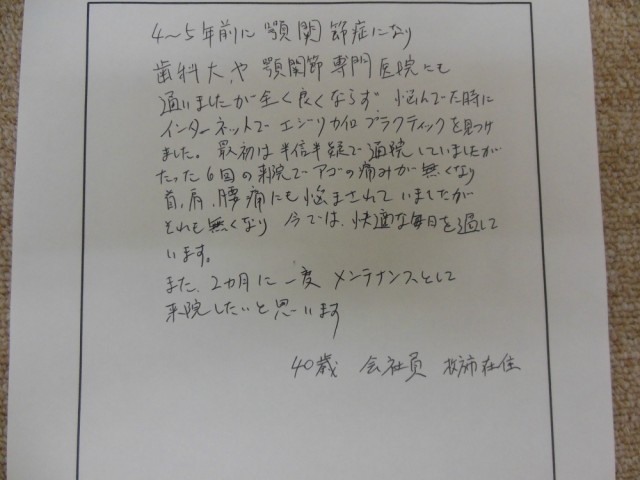 4〜5年前に 顎関節症になり
歯科大,や 顎関節専門医院にも
通いましたが全く良くならず 悩んでた時に
インターネットで エジリカイロプラクティックを見つけ
ました。最初は半信半疑で通院していましたが
たった6回の来院でアゴの痛みが無くなり
首,肩,腰痛にも悩まされていましたが
それも無くなり 今では、快適な毎日を過して
います。
また、2カ月に一度 メンテナンスとして
来院したいと思います
40歳 会社員 市在住